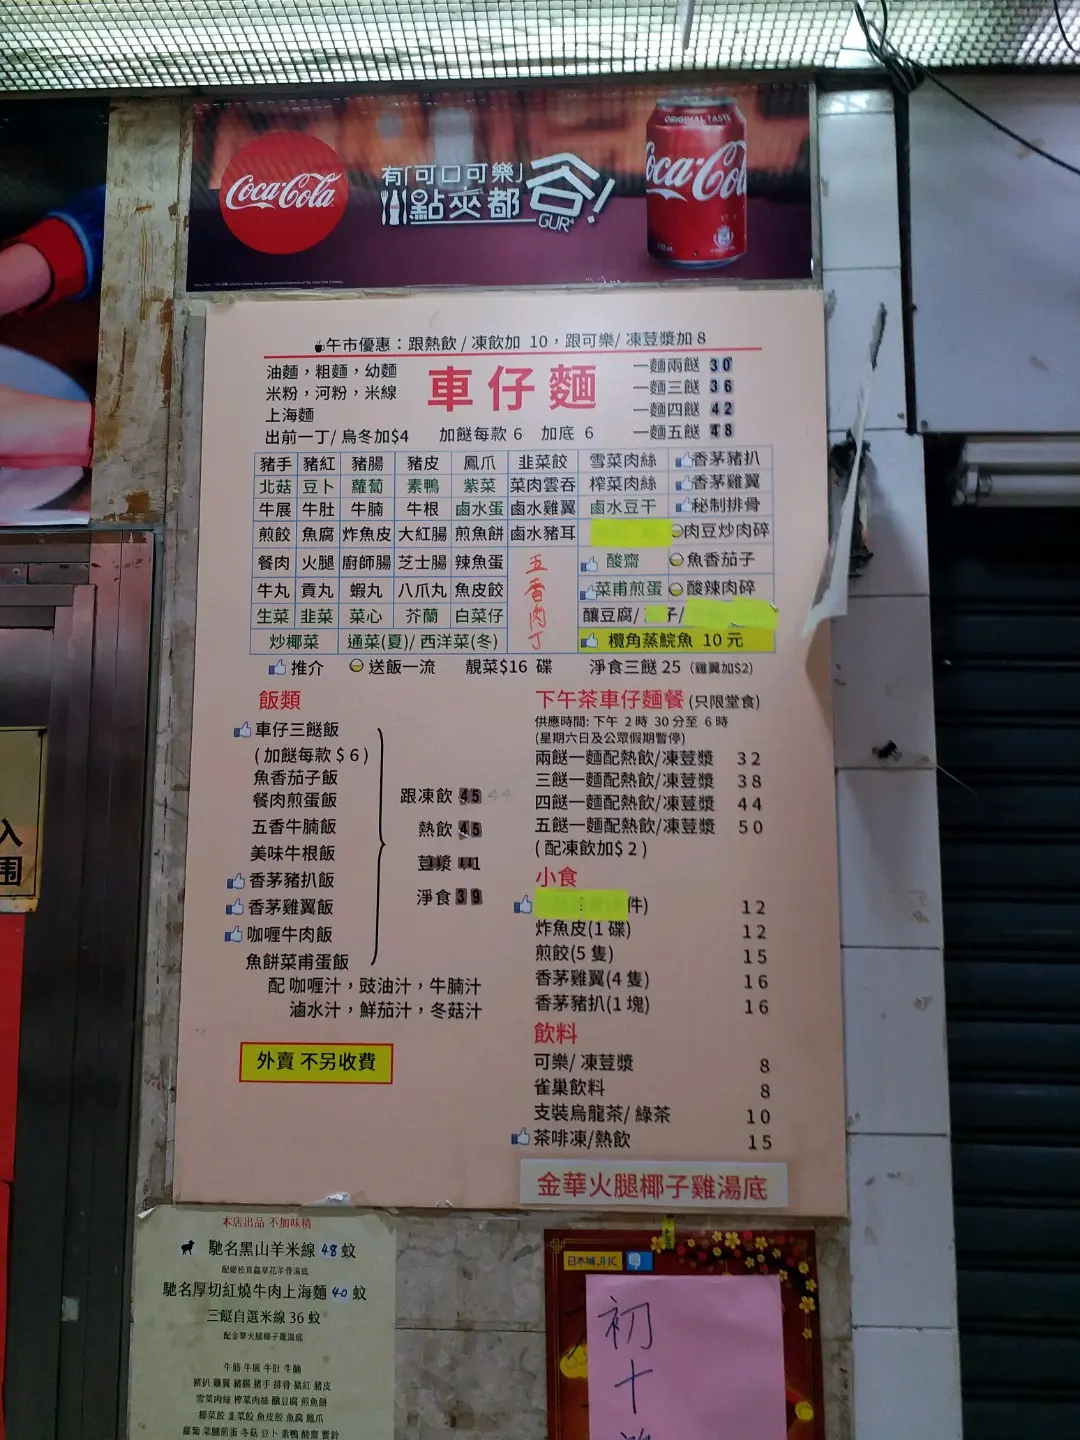 Coca-Cola
有「可口可樂」
點夾都 谷!
GUR⁴
ORIGINAL TASTE
Coca-Col
午市優惠：跟熱飲 / 凍飲加 10，跟可樂/ 凍荳漿加 8
油麵，粗麵，幼麵
米粉，河粉，米線
上海麵
出前一丁/ 烏冬加$4
車仔麵
加餸每款 6 加底 6
一麵兩餸 30
一麵三餸 36
一麵四餸 42
一麵五餸 48
豬手 豬紅 豬腸 豬皮 鳳爪 韭菜餃 雪菜肉絲 香茅豬扒
北菇 豆卜 蘿蔔 素鴨 紫菜 菜肉雲吞 榨菜肉絲 香茅雞翼
牛展 牛肚 牛腩 牛根 鹵水蛋 鹵水雞翼 鹵水豆干 秘制排骨
煎餃 魚腐 炸魚皮 大紅腸 煎魚餅 鹵水豬耳 肉豆炒肉碎
餐肉 火腿 廚師腸 芝士腸 辣魚蛋 酸齋 魚香茄子
牛丸 貢丸 蝦丸 八爪丸 魚皮餃 菜甫煎蛋 酸辣肉碎
生菜 韭菜 菜心 芥蘭 白菜仔 釀豆腐/ 子/
炒椰菜 通菜(夏)/ 西洋菜(冬) 欖角蒸鯇魚 10 元
五香肉丁
推介 送飯一流 靚菜$16 碟 淨食三餸 25 (雞翼加$2)
飯類
車仔三餸飯
( 加餸每款 $ 6 )
魚香茄子飯
餐肉煎蛋飯
五香牛腩飯
美味牛根飯
香茅豬扒飯
香茅雞翼飯
咖喱牛肉飯
魚餅菜甫蛋飯
跟凍飲 45 44
熱飲 45
荳漿 41
淨食 39
配 咖喱汁，豉油汁，牛腩汁
滷水汁，鮮茄汁，冬菇汁
外賣 不另收費
下午茶車仔麵餐 (只限堂食)
供應時間: 下午 2 時 30 分至 6 時
(星期六日及公眾假期暫停)
兩餸一麵配熱飲/凍荳漿 32
三餸一麵配熱飲/凍荳漿 38
四餸一麵配熱飲/凍荳漿 44
五餸一麵配熱飲/凍荳漿 50
( 配凍飲加$ 2 )
小食
件) 12
炸魚皮(1 碟) 12
煎餃(5 隻) 15
香茅雞翼(4 隻) 16
香茅豬扒(1 塊) 16
飲料
可樂/ 凍荳漿 8
雀巢飲料 8
支裝烏龍茶/ 綠茶 10
茶啡凍/熱飲 15
金華火腿椰子雞湯底
本店出品 不加味精
馳名黑山羊米線 48 蚊
配姬松茸蟲草花羊骨湯底
馳名厚切紅燒牛肉上海麵 40 蚊
三餸自選米線 36 蚊
配金華火腿椰子雞湯底
牛筋 牛展 牛肚 牛腩
豬扒 雞翼 豬腸 豬手 排骨 豬紅 豬皮
雪菜肉絲 榨菜肉絲 釀豆腐 煎魚餅
椰菜餃 韭菜餃 魚皮餃 魚腐 鳳爪
蘿蔔 菜脯煎蛋 冬菇 豆卜 素鴨 酸齋
日本城 JHC
初十
入
围